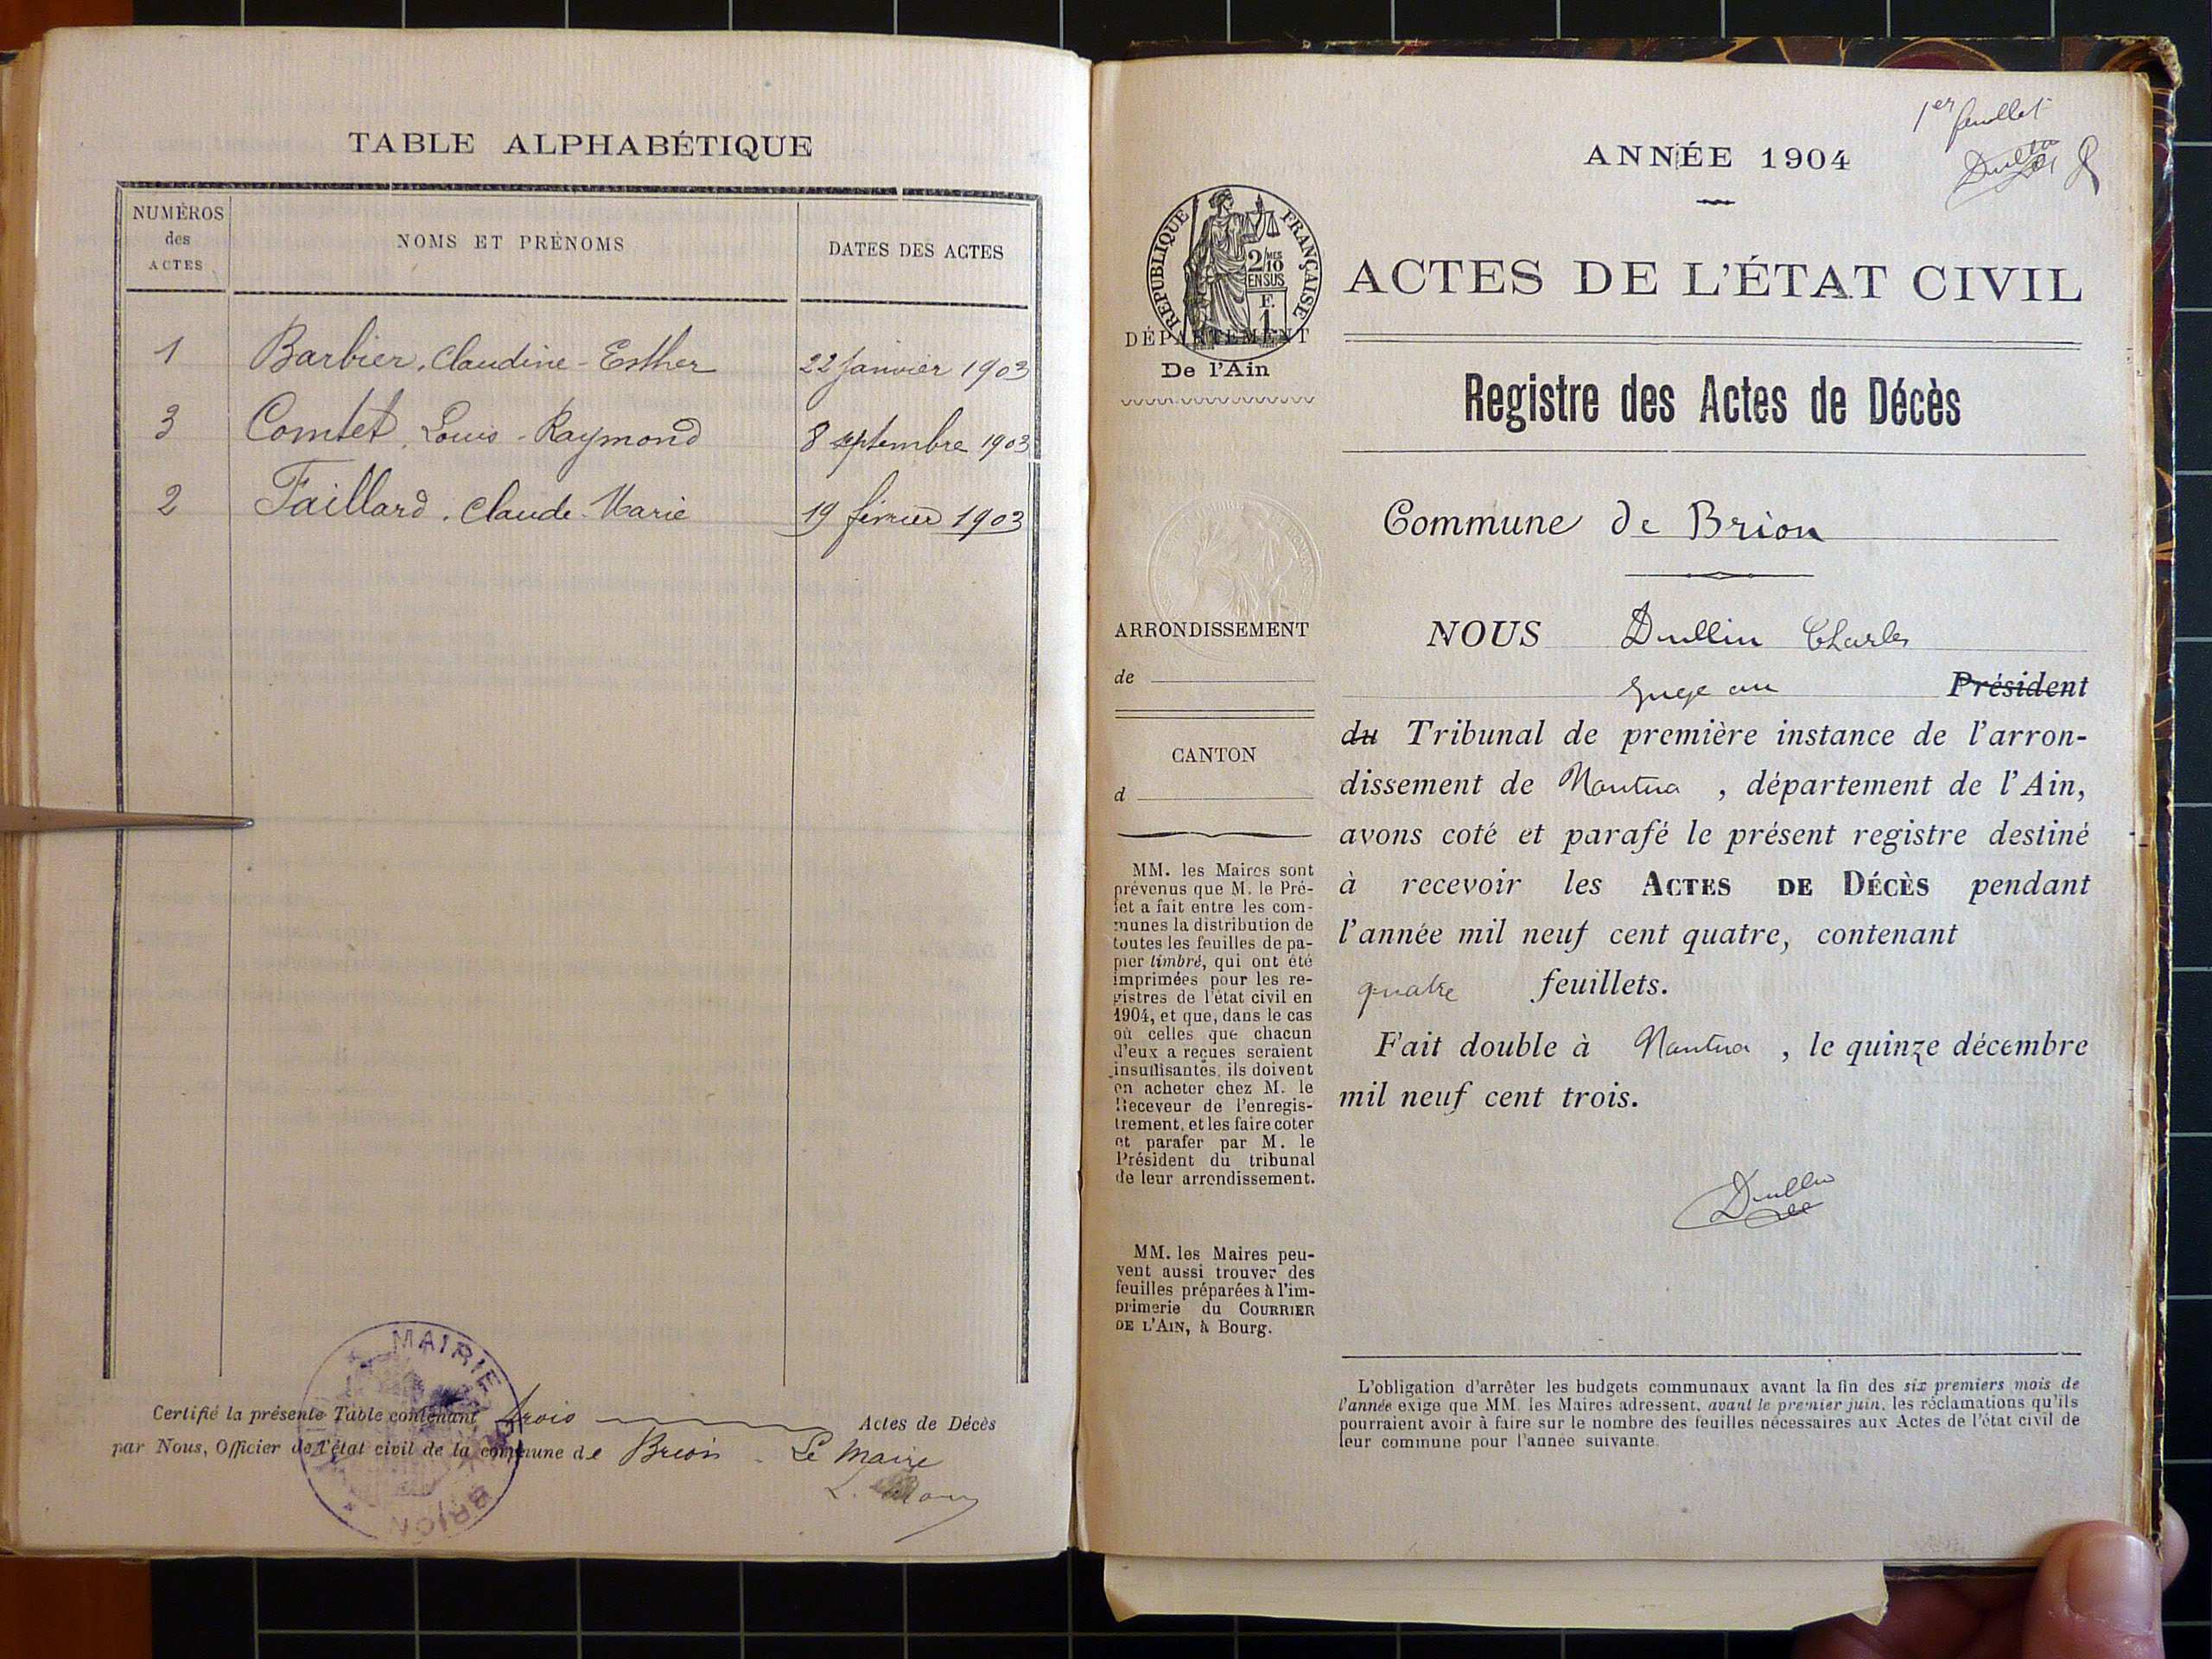 TABLE ALPHABÉTIQUE
NUMÉROS
des
ACTES
NOMS ET PRÉNOMS
DATES DES ACTES
1 Barbier, Claudine-Esther 22 janvier 1903
3 Comtet, Louis-Raymond 8 septembre 1903
2 Faillard, Claude-Marie 19 février 1903
MAIRIE
BRION
Certifié la présente Table contenant trois Actes de Décès
par Nous, Officier de l'état civil de la commune de Brion. Le Maire
1er feuillet
ANNÉE 1904
RÉPUBLIQUE FRANÇAISE
2/MES
10
EN SUS
F.
1
DÉPARTEMENT
De l'Ain
ARRONDISSEMENT
de
CANTON
d
MM. les Maires sont
prévenus que M. le Pré-
fet a fait entre les com-
munes la distribution de
toutes les feuilles de pa-
pier timbré, qui ont été
imprimées pour les re-
gistres de l'état civil en
1904, et que, dans le cas
où celles que chacun
d'eux a reçues seraient
insuffisantes, ils doivent
en acheter chez M. le
Receveur de l'enregis-
trement, et les faire coter
et parafer par M. le
Président du tribunal
de leur arrondissement.
MM. les Maires peu-
vent aussi trouver des
feuilles préparées à l'im-
primerie du COURRIER
DE L'AIN, à Bourg.
ACTES DE L'ÉTAT CIVIL
Registre des Actes de Décès
Commune de Brion
NOUS Dullin Charles
Juge au Président
du Tribunal de première instance de l'arron-
dissement de Nantua, département de l'Ain,
avons coté et parafé le présent registre destiné
à recevoir les ACTES DE DÉCÈS pendant
l'année mil neuf cent quatre, contenant
quatre feuillets.
Fait double à Nantua, le quinze décembre
mil neuf cent trois.
Dullin
L'obligation d'arrêter les budgets communaux avant la fin des six premiers mois de
l'année exige que MM. les Maires adressent, avant le premier juin, les réclamations qu'ils
pourraient avoir à faire sur le nombre des feuilles nécessaires aux Actes de l'état civil de
leur commune pour l'année suivante.